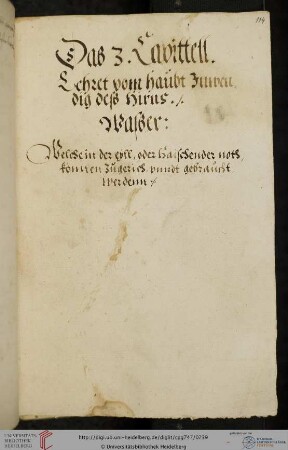 114
Das 3. Capittell.
Lehret vom haubt Inwen
dig deß Hirns ./.
Waßer:
Welche in der eyll, oder Haischender noth
konnen Zugericht vnndt gebraucht
werdenn ./.
UNIVERSITÄTS-
BIBLIOTHEK
HEIDELBERG
http://digi.ub.uni-heidelberg.de/diglit/cpg747/0239
© Universitätsbibliothek Heidelberg